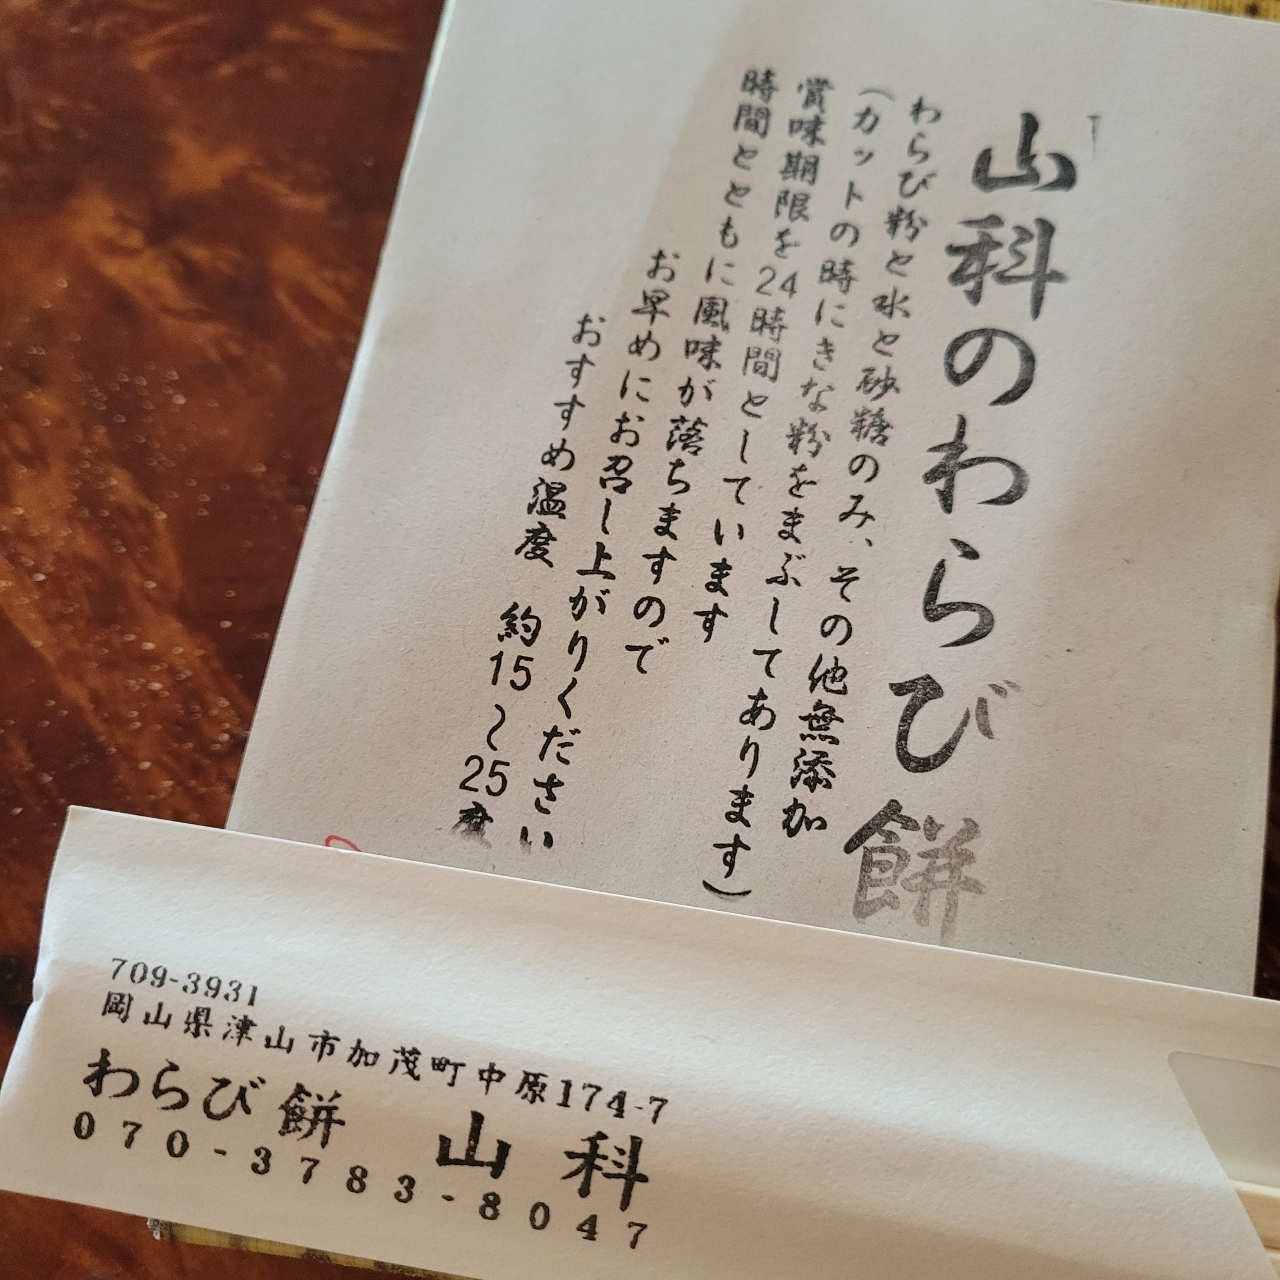 山科のわらび餅
わらび粉と水と砂糖のみ、その他無添加
(カットの時にきな粉をまぶしてあります)
賞味期限を24時間としています
時間とともに風味が落ちますので
お早めにお召し上がりください
おすすめ温度 約15~25度
709-3931
岡山県津山市加茂町中原174-7
わらび餅 山科
070-3783-8047